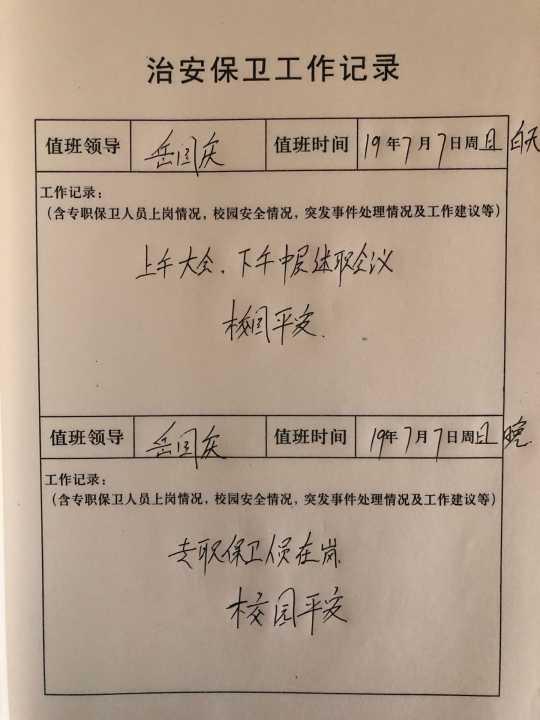 治安保卫工作记录
值班领导 岳国庆 值班时间 19年7月7日周日 白天
工作记录:
(含专职保卫人员上岗情况,校园安全情况,突发事件处理情况及工作建议等)
上午大会、下午中层述职会议
校园平安.
值班领导 岳国庆 值班时间 19年7月7日周日 晚
工作记录:
(含专职保卫人员上岗情况,校园安全情况,突发事件处理情况及工作建议等)
专职保卫人员在岗
校园平安